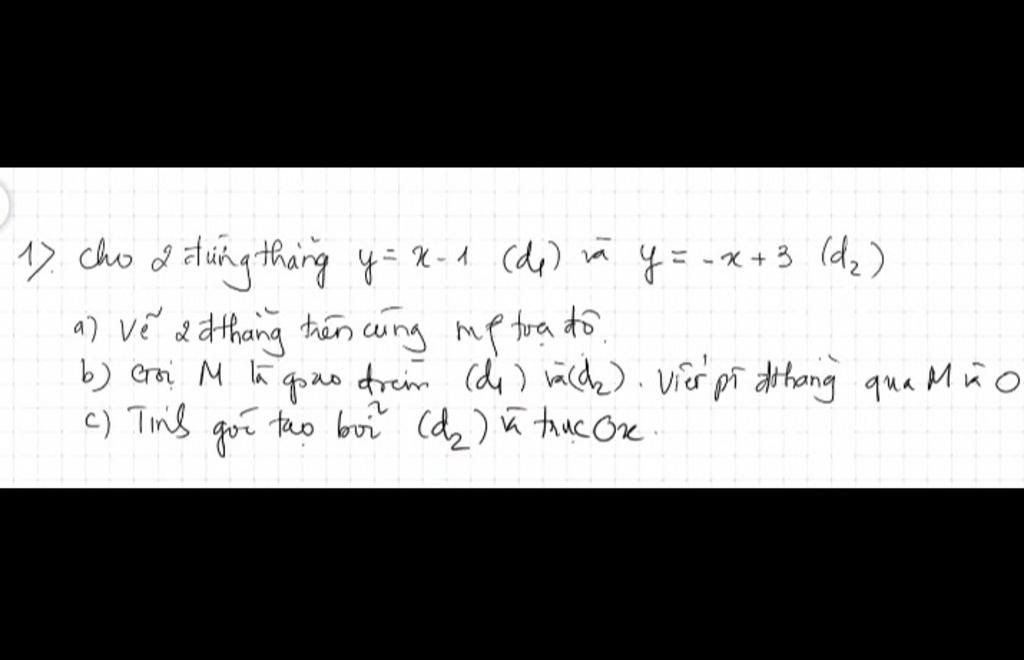 1). Cho 2 đường thẳng y = x - 1 (d₁) và y = -x + 3 (d₂)
a) Vẽ 2 đthẳng trên cùng mp toạ độ.
b) Gọi M là giao điểm (d₁) và (d₂). Viết pt đthẳng qua M và O
c) Tính góc tạo bởi (d₂) và trục Ox.